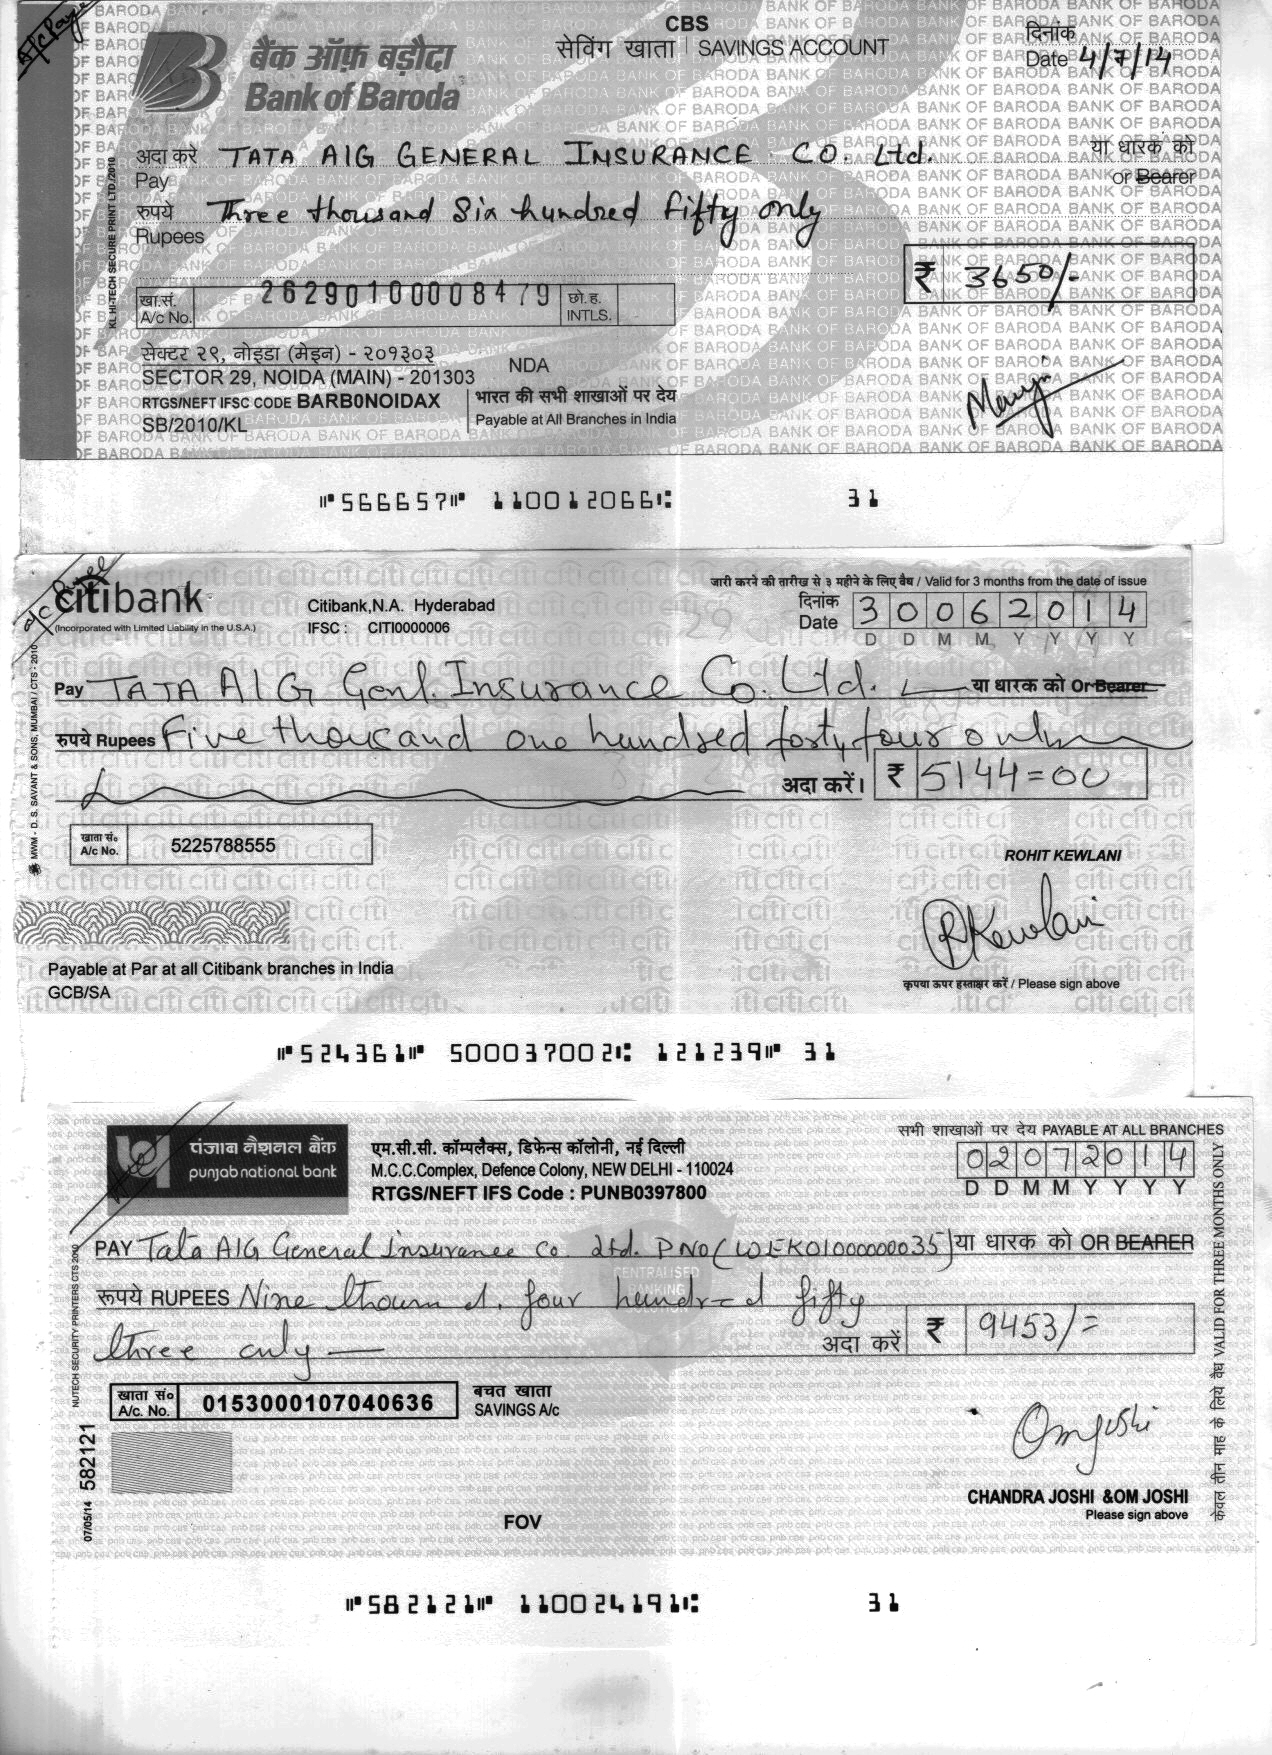 A/c Payee
CBS
सेविंग खाता | SAVINGS ACCOUNT
बैंक ऑफ़ बड़ौदा
Bank of Baroda
दिनांक
Date 4/7/14
अदा करे TATA AIG GENERAL INSURANCE CO. Ltd. या धारक को
Pay or Bearer
रुपये Three thousand Six hundred fifty only
Rupees
₹ 3650/-
खा.सं. 26290100008479 छो.ह.
A/c No. INTLS.
सेक्टर २९, नोइडा (मेइन) - २०१३०३
SECTOR 29, NOIDA (MAIN) - 201303 NDA
RTGS/NEFT IFSC CODE BARB0NOIDAX भारत की सभी शाखाओं पर देय
SB/2010/KL Payable at All Branches in India
KL HI-TECH SECURE PRINT LTD/2010
⑈566657⑈ 110012066⑆ 31
a/c Payee
citibank
(Incorporated with Limited Liability in the U.S.A.)
Citibank,N.A. Hyderabad
IFSC : CITI0000006
जारी करने की तारीख से ३ महीने के लिए वैध / Valid for 3 months from the date of issue
दिनांक
Date 30062014
D D M M Y Y Y Y
Pay TATA AIG Genl. Insurance Co. Ltd. या धारक को Or Bearer
रुपये Rupees Five thousand one hundred forty four only
अदा करें। ₹ 5144=00
खाता सं॰
A/c No. 5225788555
ROHIT KEWLANI
RKewlani
Payable at Par at all Citibank branches in India
GCB/SA
कृपया ऊपर हस्ताक्षर करें / Please sign above
MWM - D. S. SAVANT & SONS, MUMBAI / CTS : 2010
⑈524361⑈ 500037002⑆ 121239⑈ 31
पंजाब नैशनल बैंक
punjab national bank
एम.सी.सी. कॉम्पलैक्स, डिफेन्स कॉलोनी, नई दिल्ली
M.C.C.Complex, Defence Colony, NEW DELHI - 110024
RTGS/NEFT IFS Code : PUNB0397800
सभी शाखाओं पर देय PAYABLE AT ALL BRANCHES
02072014
D D M M Y Y Y Y
PAY Tata AIG General Insurance Co. Ltd. PNO (WEK0100000035) या धारक को OR BEARER
रूपये RUPEES Nine thousand four hundred fifty
three only
अदा करें ₹ 9453/=
CENTRALISED
खाता सं॰
A/c. No. 0153000107040636
बचत खाता
SAVINGS A/c
Omjoshi
CHANDRA JOSHI &OM JOSHI
Please sign above
FOV
07/05/14 582121
NUTECH SECURITY PRINTERS CTS 2010
केवल तीन माह के लिये वैध VALID FOR THREE MONTHS ONLY
⑈582121⑈ 110024191⑆ 31